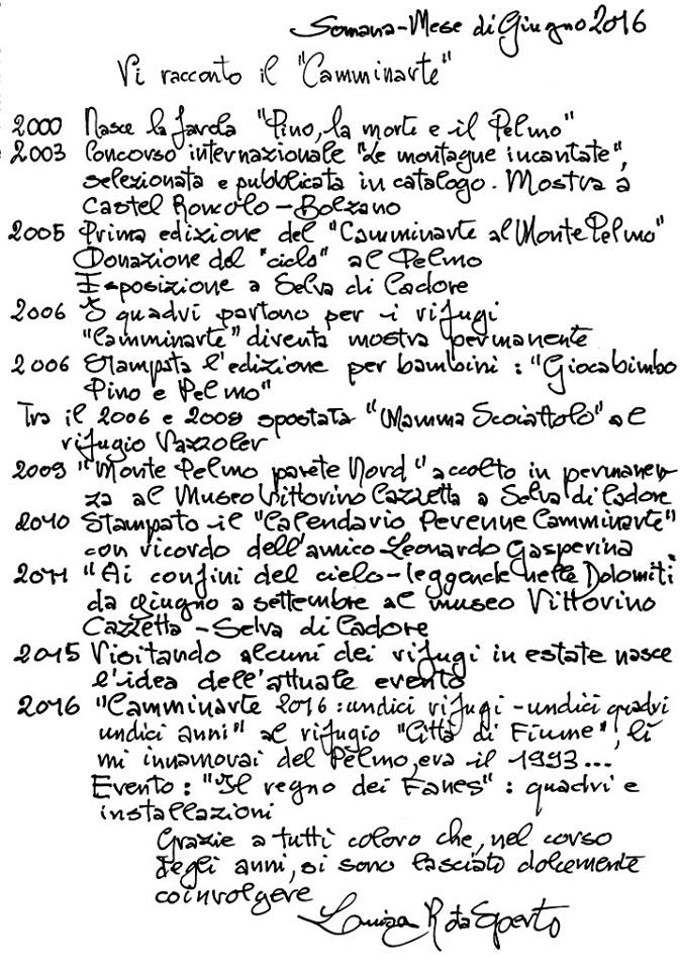 Somana-Mese di Giugno 2016
Vi racconto il "Camminarte"
2000 Nasce la favola "Pino, la morte e il Pelmo"
2003 Concorso internazionale "Le montagne incantate",
selezionata e pubblicata in catalogo. Mostra a
Castel Roncolo - Bolzano
2005 Prima edizione del "Camminarte al Monte Pelmo"
Donazione del "ciclo" al Pelmo
Esposizione a Selva di Cadore
2006 I quadri partono per i rifugi
"Camminarte" diventa mostra permanente
2006 Stampata l'edizione per bambini : "Giocabimbo
Pino e Pelmo"
Tra il 2006 e 2008 spostata "Mamma Scoiattolo" al
rifugio Vazzoler
2009 "Monte Pelmo parete Nord" accolto in permanen-
za al Museo Vittorino Cazzetta a Selva di Cadore
2010 Stampato il "Calendario Perenne Camminarte"
con ricordo dell'amico Leonardo Gasperina
2011 "Ai confini del cielo - leggende nelle Dolomiti
da giugno a settembre al museo Vittorino
Cazzetta - Selva di Cadore
2015 Visitando alcuni dei rifugi in estate nasce
l'idea dell'attuale evento
2016 "Camminarte 2016 : undici rifugi - undici quadri
undici anni" al rifugio "Città di Fiume", lì
mi innamorai del Pelmo, era il 1993...
Evento : "Il regno dei Fanes" : quadri e
installazioni
Grazie a tutti coloro che, nel corso
degli anni, si sono lasciati dolcemente
coinvolgere
Luisa Rota Sperto